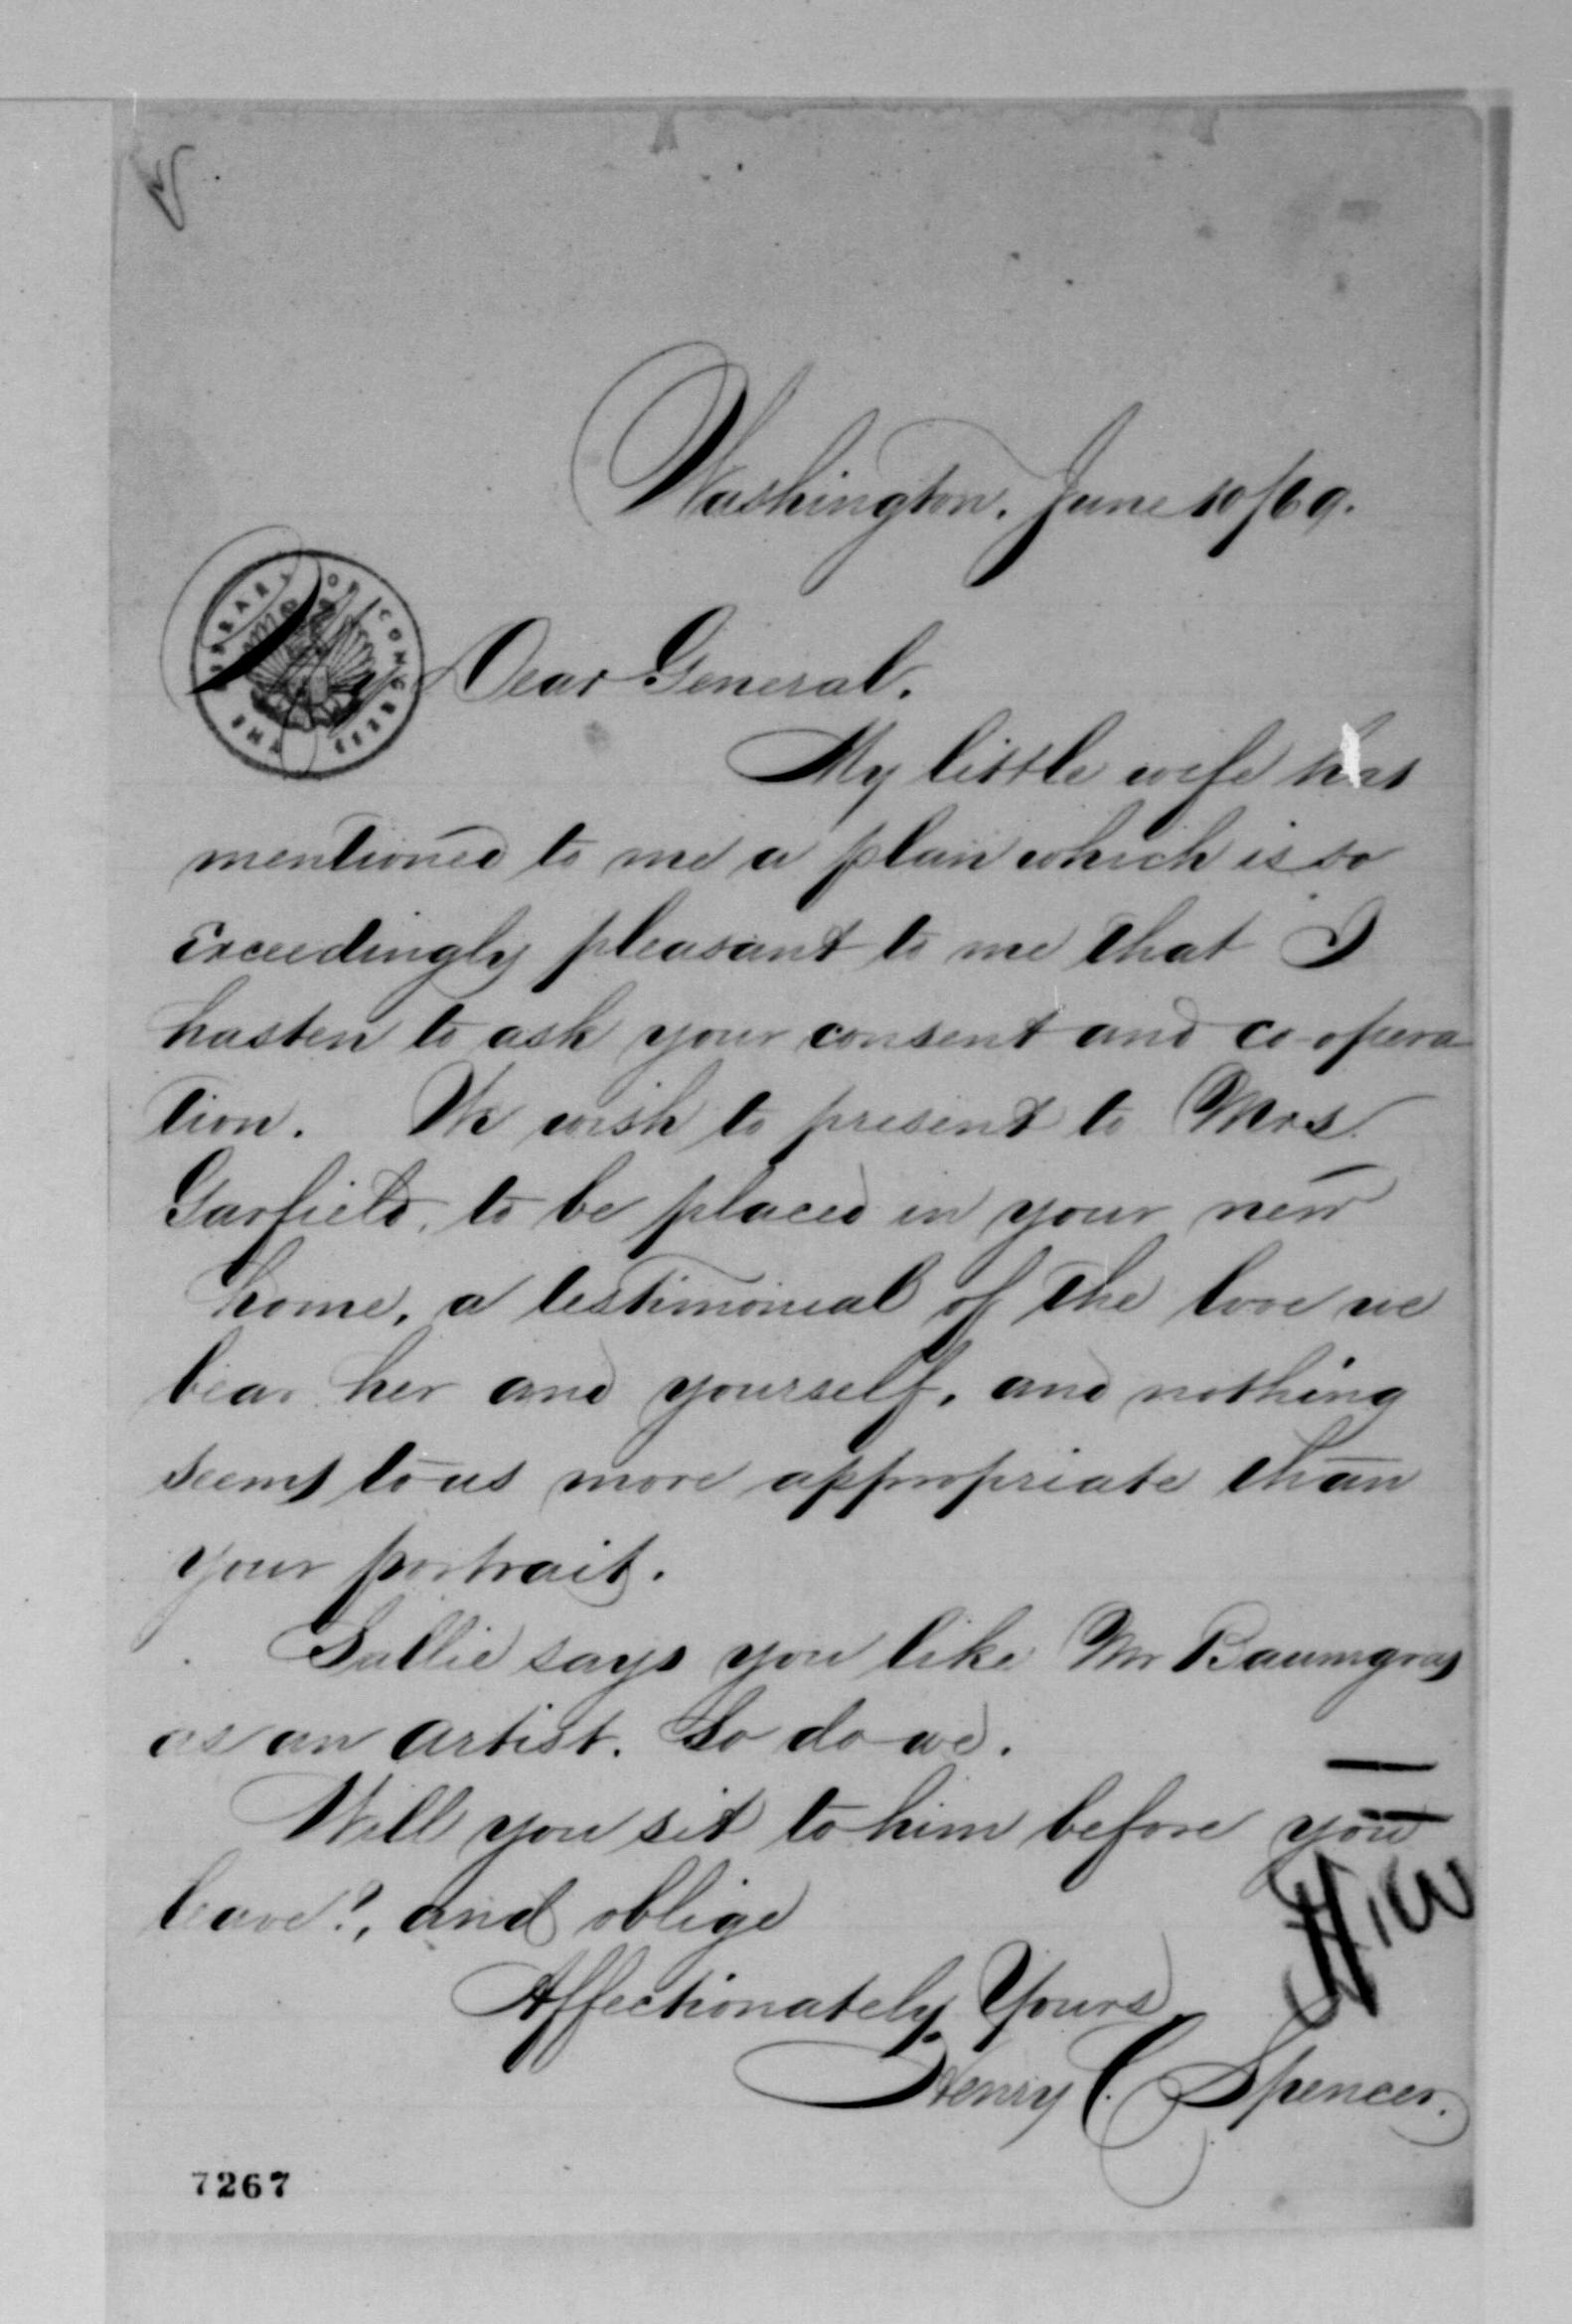 Washington. June 10/69.
THE LIBRARY OF CONGRESS
My Dear General.
My little wife has
mentioned to me a plan which is so
exceedingly pleasant to me that I
hasten to ask your consent and co-opera
tion. We wish to present to Mrs.
Garfield, to be placed in your new
home, a testimonial of the love we
bear her and yourself, and nothing
seems to us more appropriate than
your portrait.
Sallie says you like Mr Baumgras
as an artist. So do we.
Will you sit to him before you
leave?, and oblige
Affectionately Yours,
Henry C. Spencer.
7267